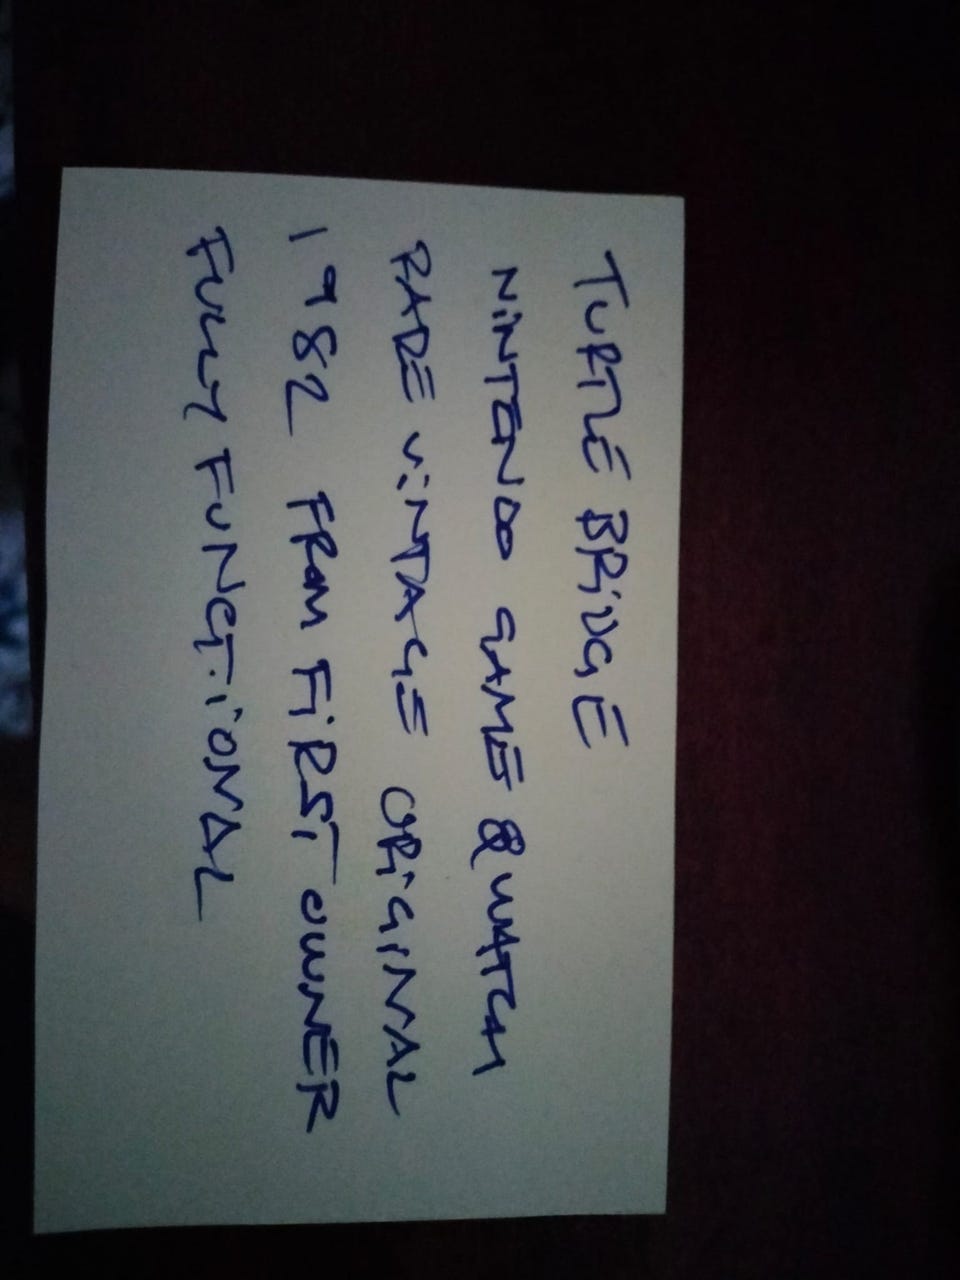 TURTLE BRIDGE
NINTENDO GAME & WATCH
RARE VINTAGE ORIGINAL
1982 FROM FIRST OWNER
FULLY FUNCTIONAL